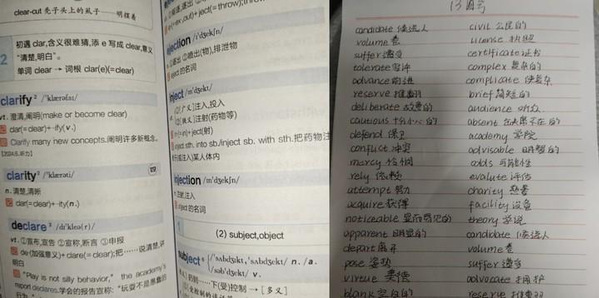 clear-cut 秃子头上的虱子——明摆着
2
初遇 clar,含义很难猜,添 e 写成 clear,意义
"清楚,明白"。
单词 clear → 词根 clar(e)(=clear)
clarify² /'klærəfaɪ/
vt. 澄清,阐明(make or become clear)
clar(=clear)+-ify(v.)
Clarify many new concepts.阐明许多新概念。
clarity² /'klærəti/
n. 清楚,清晰
clar(=clear)+-ity(n.)
declare³ /dɪ'kleə(r)/
vt. ①宣布,宣告 ②宣称,断言 ③申报
de(加强意义)+clare(=clear);把……说清楚
"Play is not silly behavior," the academy's
report declares.学会的报告宣称:"玩耍不是愚蠢的
ject(=throw);
ejection /i'dʒekʃn/
①逐出 ②喷出(物),排泄物
eject 的名词
inject /ɪn'dʒekt/
注入,投入
注射(药物等)
in(=in)+ject(射)
inject sth. into sb./inject sb. with sth.把药物注
射(或注入)某人体内
injection /ɪn'dʒekʃn/
注射,注入
inject 的名词
(2) subject,object
subject /'sʌbdʒɪkt/ n. / a.
/səb'dʒekt/ v.
下(受)控制→[多义]
13单词
candidate 候选人
volume 卷
suffer 遭受
tolerate 容许
advance 前进
reserve
deliberate 故意的
cautious 十分小心的
defend 保卫
conflict 冲突
mercy
rely 依赖
attempt 努力
acquire 获得
noticeable 显而易见的
apparent 明显的
depart 离开
pose 姿势
virtue 美德
blank 空白的
civil 公民的
license 执照
certificate 证书
complex 复杂的
complicate 使复杂
brief 简短的
audience 听众
absent 缺席不在的
academy 学院
advisable 明智的
odds 可能性
evaluate 评估
charity 慈善
facility 设备
theory 学说
candidate 候选人
volume 卷
suffer 遭受
advocate 拥护
reserve